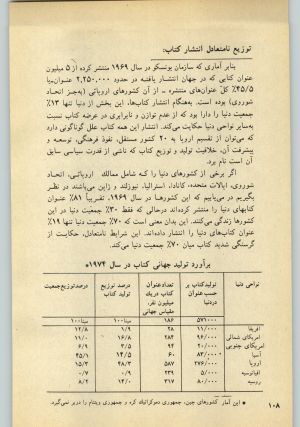 توزیع نامتعادل انتشار کتاب:
بنابر آماری که سازمان یونسکو در سال ۱۹۶۹ منتشر کرده از ۵ میلیون
عنوان کتابی که در جهان انتشار یافته در حدود ۲,۲۵۰,۰۰۰ عنوان، یا
۴۵/۵٪ کل عنوان‌های منتشره ـ از آن کشورهای اروپائی (بجز اتحاد
شوروی) بوده است. به‌هنگام انتشار کتاب‌ها، این بخش از دنیا تنها ۱۳٪
جمعیت دنیا را دارا بود که از عدم توازن و نابرابری در عرضه کتاب نسبت
به‌سایر نواحی دنیا حکایت می‌کند. انتشار این همه کتاب علل گوناگونی دارد
که می‌توان از تقسیم اروپا به ۲۰ کشور مستقل، نفوذ فرهنگی، توسعه و
پیشرفت آن، خلاقیت تولید و توزیع کتاب که ناشی از قدرت سیاسی سابق
آن است نام برد.
اگر برخی از کشورهای دنیا را که شامل ممالک اروپائی، اتحاد
شوروی، ایالات متحده، کانادا، استرالیا، نیوزلند و ژاپن می‌باشند در نظر
بگیریم در می‌یابیم که این کشورها در سال ۱۹۶۹، تقریباً ۸۱٪ عنوان
کتابهای دنیا را منتشر کرده‌اند درحالی که فقط ۳۰٪ جمعیت دنیا در این
کشورها زندگی می‌کنند. این بدان معنی است که ۷۰٪ جمعیت دنیا تنها ۱۹٪
عنوان کتاب‌های دنیا را انتشار داده‌اند. این شرایط نامتعادل، حکایت از
گرسنگی شدید کتاب میان ۷۰٪ جمعیت دنیا می‌کند.
برآورد تولید جهانی کتاب در سال ۱۹۷۴*
نواحی دنیا تولید کتاب بر حسب عنوان در دنیا تعداد عنوان کتاب در یک میلیون نفر، مقیاس جهانی درصد توزیع تولید کتاب درصد توزیع جمعیت
۵۷۱۰۰۰ ۱۸۶ مبنا=۱۰۰ مبنا=۱۰۰
آفریقا ۱۱/۰۰۰ ۲۸ ۱/۹ ۱۲/۸
امریکای شمالی ۹۶/۰۰۰ ۲۸۴ ۱۶/۸ ۱۱/۰
امریکای جنوبی ۲۰/۰۰۰ ۹۴ ۳/۵ ۶/۹
آسیا ۸۳/۰۰۰* ۶۰ ۱۴/۵ ۴۵/۱
اروپا ۲۷۶/۰۰۰ ۵۸۷ ۴۸/۳ ۱۵/۳
اقیانوسیه ۵/۰۰۰ ۲۳۹ ۰/۹ ۰/۷
روسیه ۸۰/۰۰۰ ۳۱۷ ۱۴/۰ ۸/۲
* این آمار کشورهای چین، جمهوری دموکراتیک کره و جمهوری ویتنام را دربر نمی‌گیرد.
۱۰۸